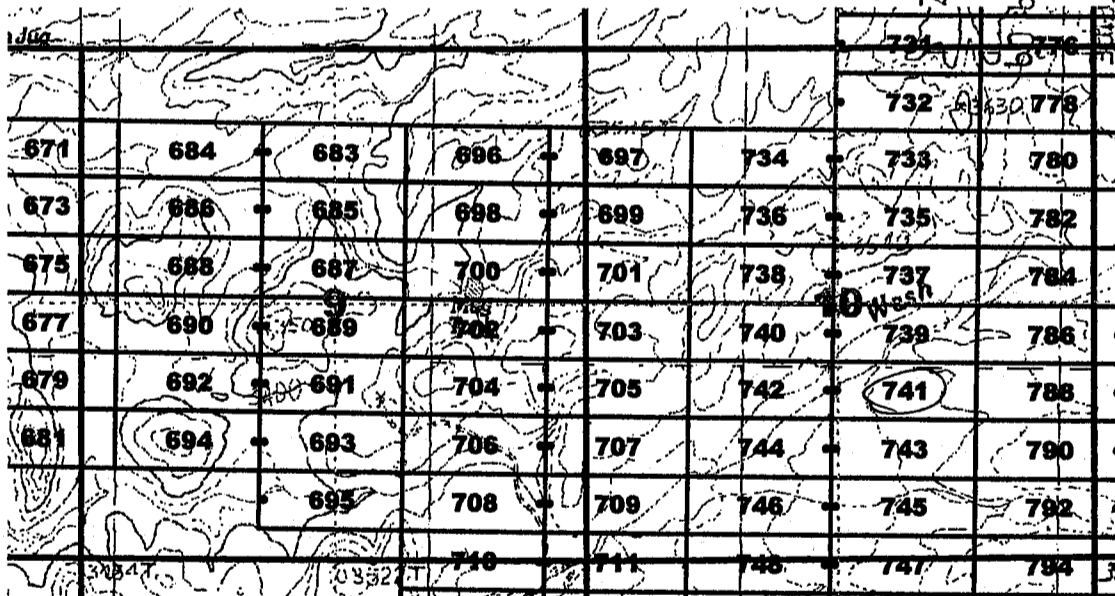 731 776
732 3630T 778
671 684 683 696 697 734 733 780
673 686 685 698 699 736 735 782
675 688 687 700 701 738 737 784
9 10 Wash
677 690 689 702 703 740 739 786
679 692 691 704 705 742 741 788
681 694 693 706 707 744 743 790
695 708 709 746 745 792
710 711 748 747 794